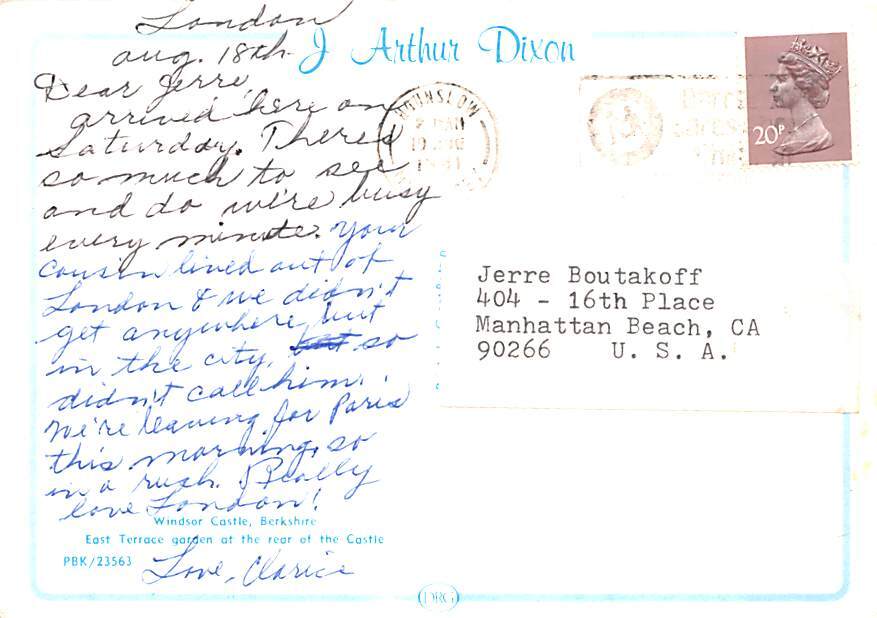 London
Aug. 18th
Dear Jerre,
arrived here on
Saturday. There's
so much to see
and do we're busy
every minute. Your
cousin lived out of
London & we didn't
get anywhere, but
in the city, but so
didn't call him.
We're leaving for Paris
this morning, so
in a rush. Really
love London!
Love, Clarice
J Arthur Dixon
HOUNSLOW
20P
Jerre Boutakoff
404 - 16th Place
Manhattan Beach, CA
90266 U. S. A.
Windsor Castle, Berkshire
East Terrace garden at the rear of the Castle
PBK/23563
DRG